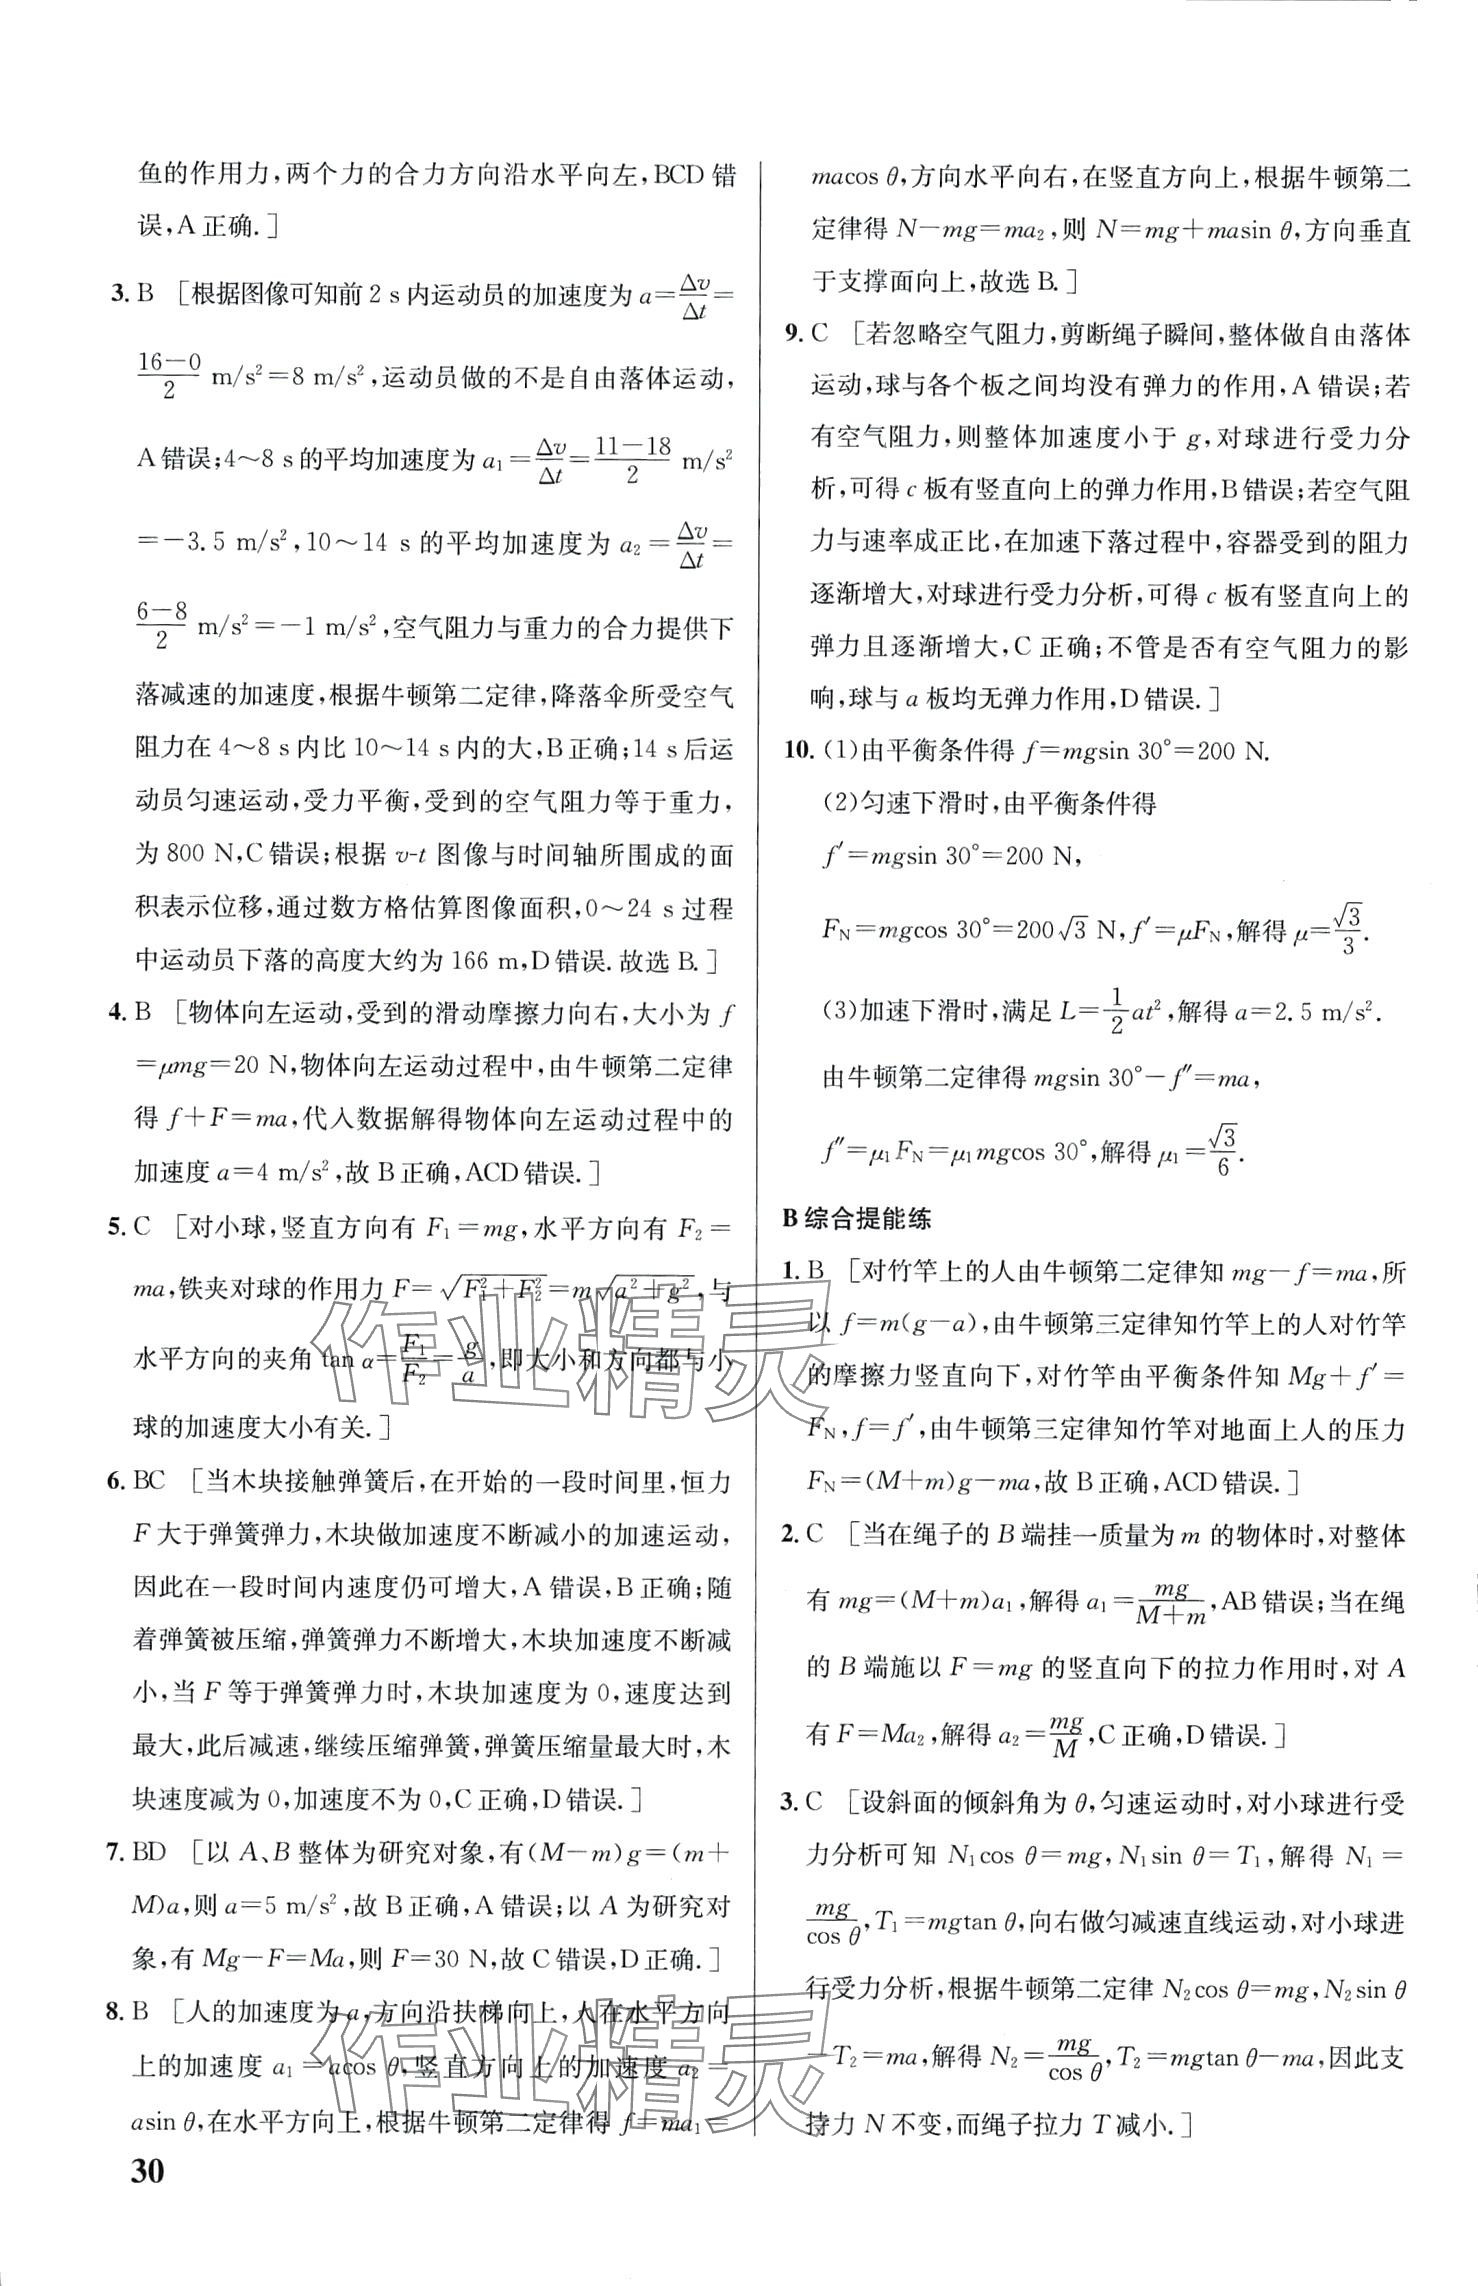 鱼的作用力,两个力的合力方向沿水平向左,BCD错
误,A正确.]
3. B [根据图像可知前2 s内运动员的加速度为a=Δv/Δt=
(16-0)/2 m/s²=8 m/s²,运动员做的不是自由落体运动,
A错误;4～8 s的平均加速度为a₁=Δv/Δt=(11-18)/2 m/s²
=-3.5 m/s²,10～14 s的平均加速度为a₂=Δv/Δt=
(6-8)/2 m/s²=-1 m/s²,空气阻力与重力的合力提供下
落减速的加速度,根据牛顿第二定律,降落伞所受空气
阻力在4～8 s内比10～14 s内的大,B正确;14 s后运
动员匀速运动,受力平衡,受到的空气阻力等于重力,
为800 N,C错误;根据v-t图像与时间轴所围成的面
积表示位移,通过数方格估算图像面积,0～24 s过程
中运动员下落的高度大约为166 m,D错误.故选B.]
4. B [物体向左运动,受到的滑动摩擦力向右,大小为f
=μmg=20 N,物体向左运动过程中,由牛顿第二定律
得f+F=ma,代入数据解得物体向左运动过程中的
加速度a=4 m/s²,故B正确,ACD错误.]
5. C [对小球,竖直方向有F₁=mg,水平方向有F₂=
ma,铁夹对球的作用力F=√(F₁²+F₂²)=m√(a²+g²),与
水平方向的夹角tan α=F₁/F₂=g/a,即大小和方向都与小
球的加速度大小有关.]
6. BC [当木块接触弹簧后,在开始的一段时间里,恒力
F大于弹簧弹力,木块做加速度不断减小的加速运动,
因此在一段时间内速度仍可增大,A错误,B正确;随
着弹簧被压缩,弹簧弹力不断增大,木块加速度不断减
小,当F等于弹簧弹力时,木块加速度为0,速度达到
最大,此后减速,继续压缩弹簧,弹簧压缩量最大时,木
块速度减为0,加速度不为0,C正确,D错误.]
7. BD [以A、B整体为研究对象,有(M-m)g=(m+
M)a,则a=5 m/s²,故B正确,A错误;以A为研究对
象,有Mg-F=Ma,则F=30 N,故C错误,D正确.]
8. B [人的加速度为a,方向沿扶梯向上,人在水平方向
上的加速度a₁=acos θ,竖直方向上的加速度a₂=
asin θ,在水平方向上,根据牛顿第二定律得f=ma₁=
30
macos θ,方向水平向右,在竖直方向上,根据牛顿第二
定律得N-mg=ma₂,则N=mg+masin θ,方向垂直
于支撑面向上,故选B.]
9. C [若忽略空气阻力,剪断绳子瞬间,整体做自由落体
运动,球与各个板之间均没有弹力的作用,A错误;若
有空气阻力,则整体加速度小于g,对球进行受力分
析,可得c板有竖直向上的弹力作用,B错误;若空气阻
力与速率成正比,在加速下落过程中,容器受到的阻力
逐渐增大,对球进行受力分析,可得c板有竖直向上的
弹力且逐渐增大,C正确;不管是否有空气阻力的影
响,球与a板均无弹力作用,D错误.]
10. (1)由平衡条件得f=mgsin 30°=200 N.
(2)匀速下滑时,由平衡条件得
f′=mgsin 30°=200 N,
F_N=mgcos 30°=200√3 N,f′=μF_N,解得μ=√3/3.
(3)加速下滑时,满足L=1/2at²,解得a=2.5 m/s².
由牛顿第二定律得mgsin 30°-f″=ma,
f″=μ₁F_N=μ₁mgcos 30°,解得μ₁=√3/6.
B 综合提能练
1. B [对竹竿上的人由牛顿第二定律知mg-f=ma,所
以f=m(g-a),由牛顿第三定律知竹竿上的人对竹竿
的摩擦力竖直向下,对竹竿由平衡条件知Mg+f′=
F_N,f=f′,由牛顿第三定律知竹竿对地面上人的压力
F_N=(M+m)g-ma,故B正确,ACD错误.]
2. C [当在绳子的B端挂一质量为m的物体时,对整体
有mg=(M+m)a₁,解得a₁=mg/(M+m),AB错误;当在绳
的B端施以F=mg的竖直向下的拉力作用时,对A
有F=Ma₂,解得a₂=mg/M,C正确,D错误.]
3. C [设斜面的倾斜角为θ,匀速运动时,对小球进行受
力分析可知N₁cos θ=mg,N₁sin θ=T₁,解得N₁=
mg/cos θ,T₁=mgtan θ,向右做匀减速直线运动,对小球进
行受力分析,根据牛顿第二定律N₂cos θ=mg,N₂sin θ
-T₂=ma,解得N₂=mg/cos θ,T₂=mgtan θ-ma,因此支
持力N不变,而绳子拉力T减小.]
作业精灵
作业精灵